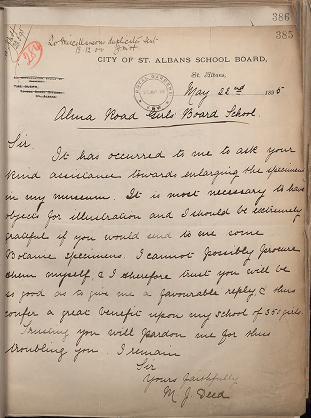 386
385
To Miscellaneous duplicates sent
15.12.00
CITY OF ST. ALBANS SCHOOL BOARD,
St. Albans,
ROYAL GARDENS
KEW
May 22nd 1895
Alma Road Girls' Board School.
Sir
It has occurred to me to ask your
kind assistance towards enlarging the specimens
in my museum. It is most necessary to have
objects for illustration and I should be extremely
grateful if you would send to me some
Botanic specimens. I cannot possibly procure
them myself, & I therefore trust you will be
so good as to give me a favourable reply, & thus
confer a great benefit upon my school of 350 girls.
Trusting you will pardon me for thus
troubling you. I remain
Sir
Yours faithfully
M. J. Deed